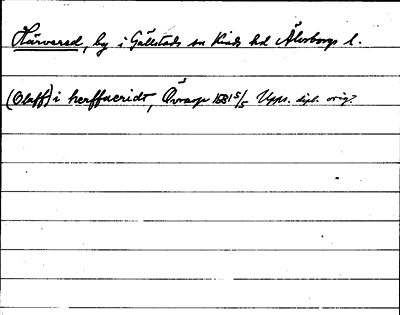 Härvered, by i Gällstads sn Kinds hd Älvsborgs l.
(Olaff) i herffueridt, Övraryp 1581 5/5 Upps. dipl. orig?